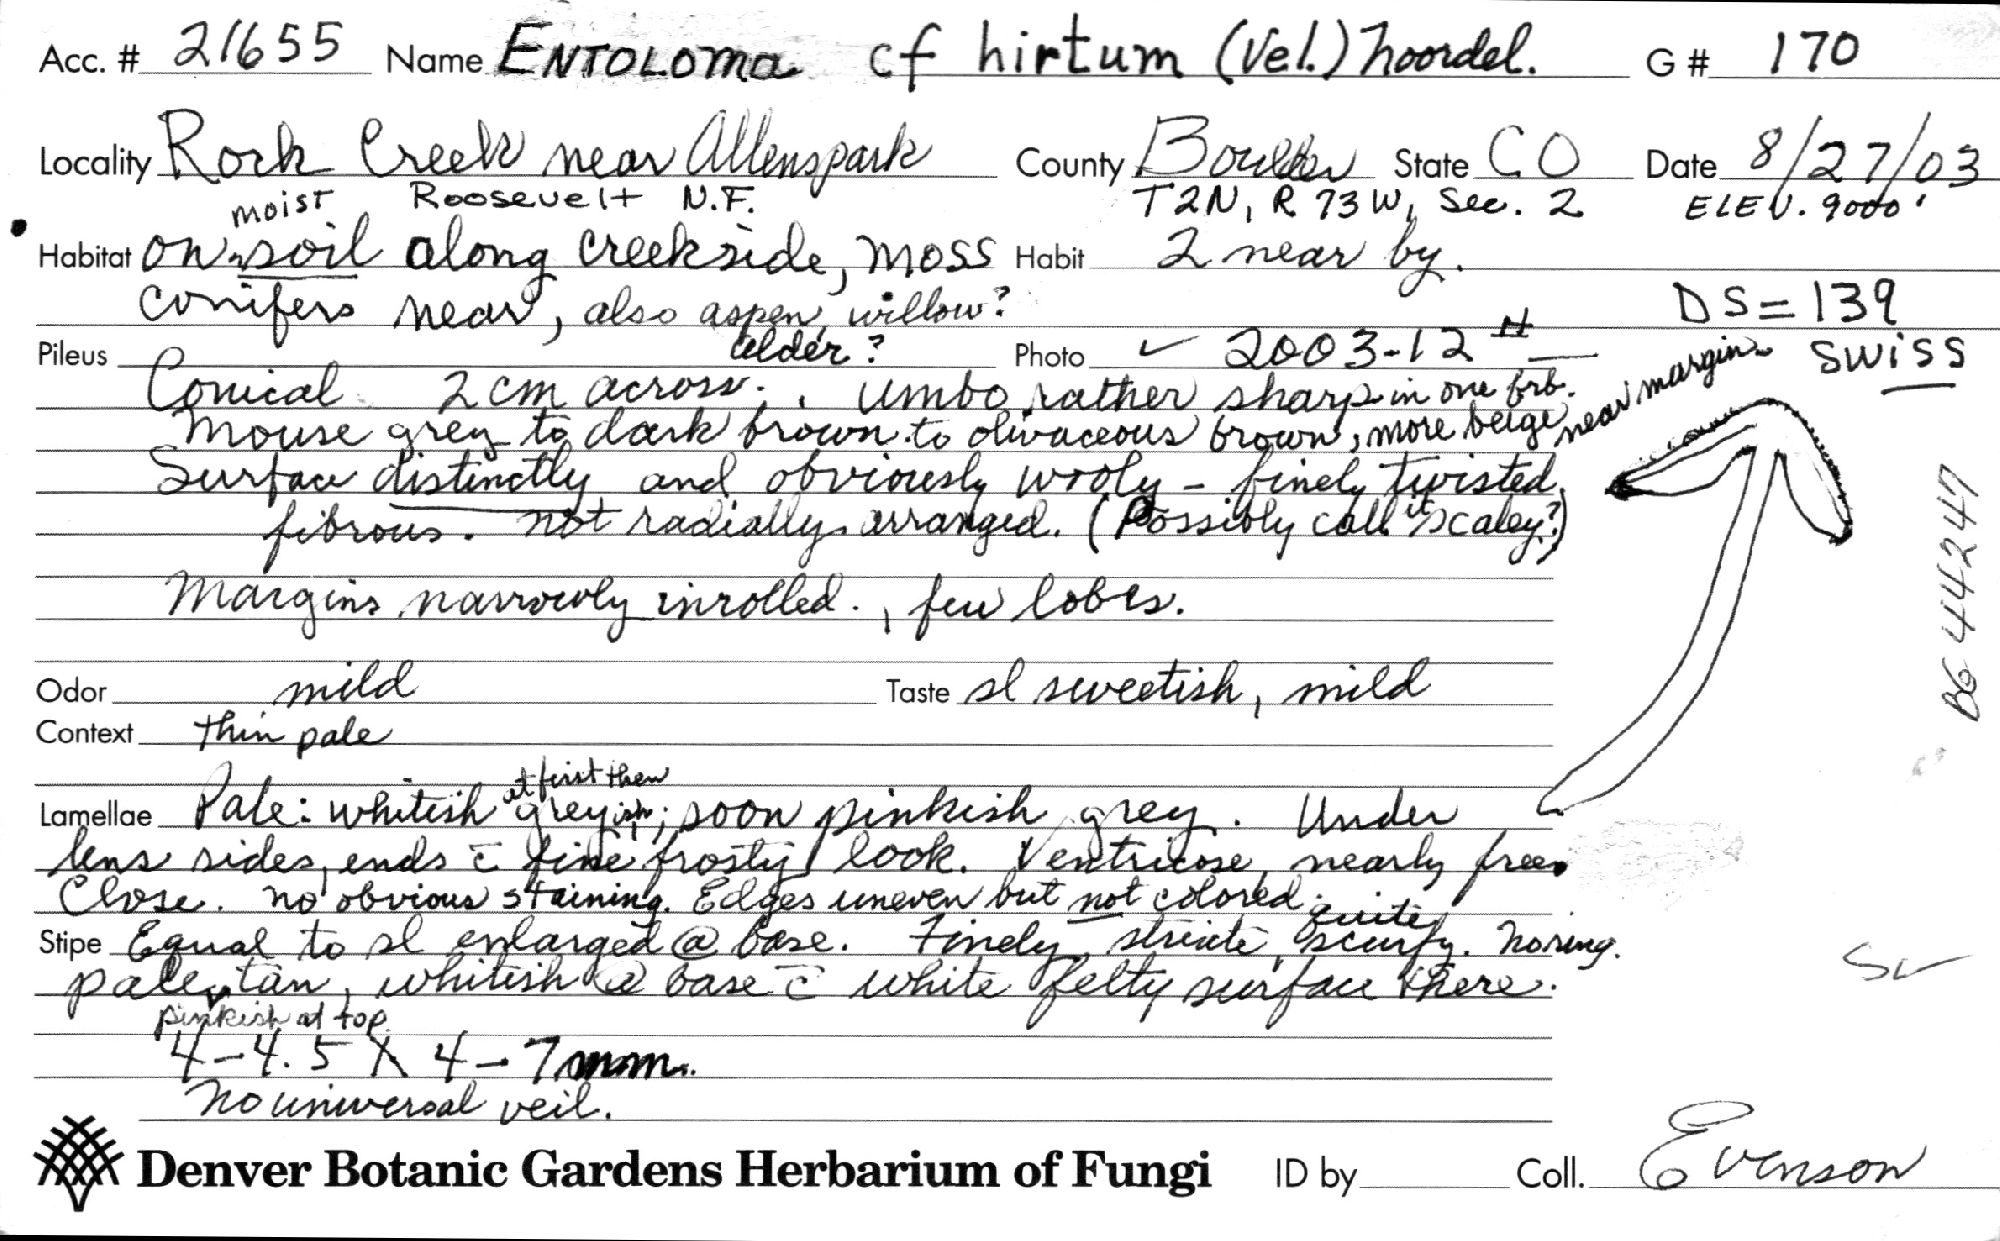 Acc. # 21655 Name ENTOLOMA cf hirtum (Vel.) Noordel. G # 170
Locality Rock Creek near Allenspark County Boulder State CO Date 8/27/03
moist Roosevelt N.F. T2N, R 73W, Sec. 2 ELEV. 9000'
Habitat on soil along creekside, moss Habit 2 near by.
conifers near, also aspen, willow? DS = 139
alder? SWISS
Pileus Photo ✓ 2003-12 #
Conical 2 cm across. umbo rather sharp in one frb.
Mouse grey to dark brown to olivaceous brown, more beige near margin
Surface distinctly and obviously wooly - finely twisted
fibrous. not radially arranged. (Possibly call it scaley?)
Margins narrowly inrolled., few lobes.
BG 44247
Odor mild Taste sl sweetish, mild
Context thin pale
at first then
Lamellae Pale: whitish greyish; soon pinkish grey. Under
lens sides, ends c̄ fine frosty look. Ventricose, nearly free.
Close. no obvious staining. Edges uneven but not colored.
quite
Stipe Equal to sl enlarged @ base. Finely striate, scurfy. No ring.
pale tan, whitish @ base c̄ white felty surface there.
pinkish at top
4-4.5 X 4-7 mm.
No universal veil.
Denver Botanic Gardens Herbarium of Fungi ID by Coll. Evenson